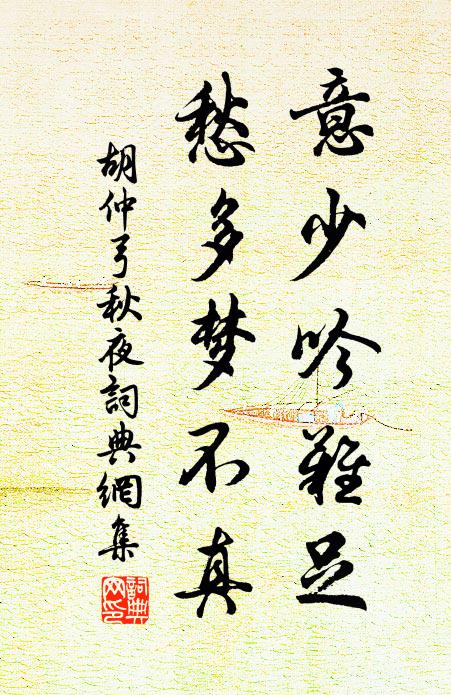 意少吟難足
愁多梦不真
胡仲弓秋夜詞典網集
詞典
网印